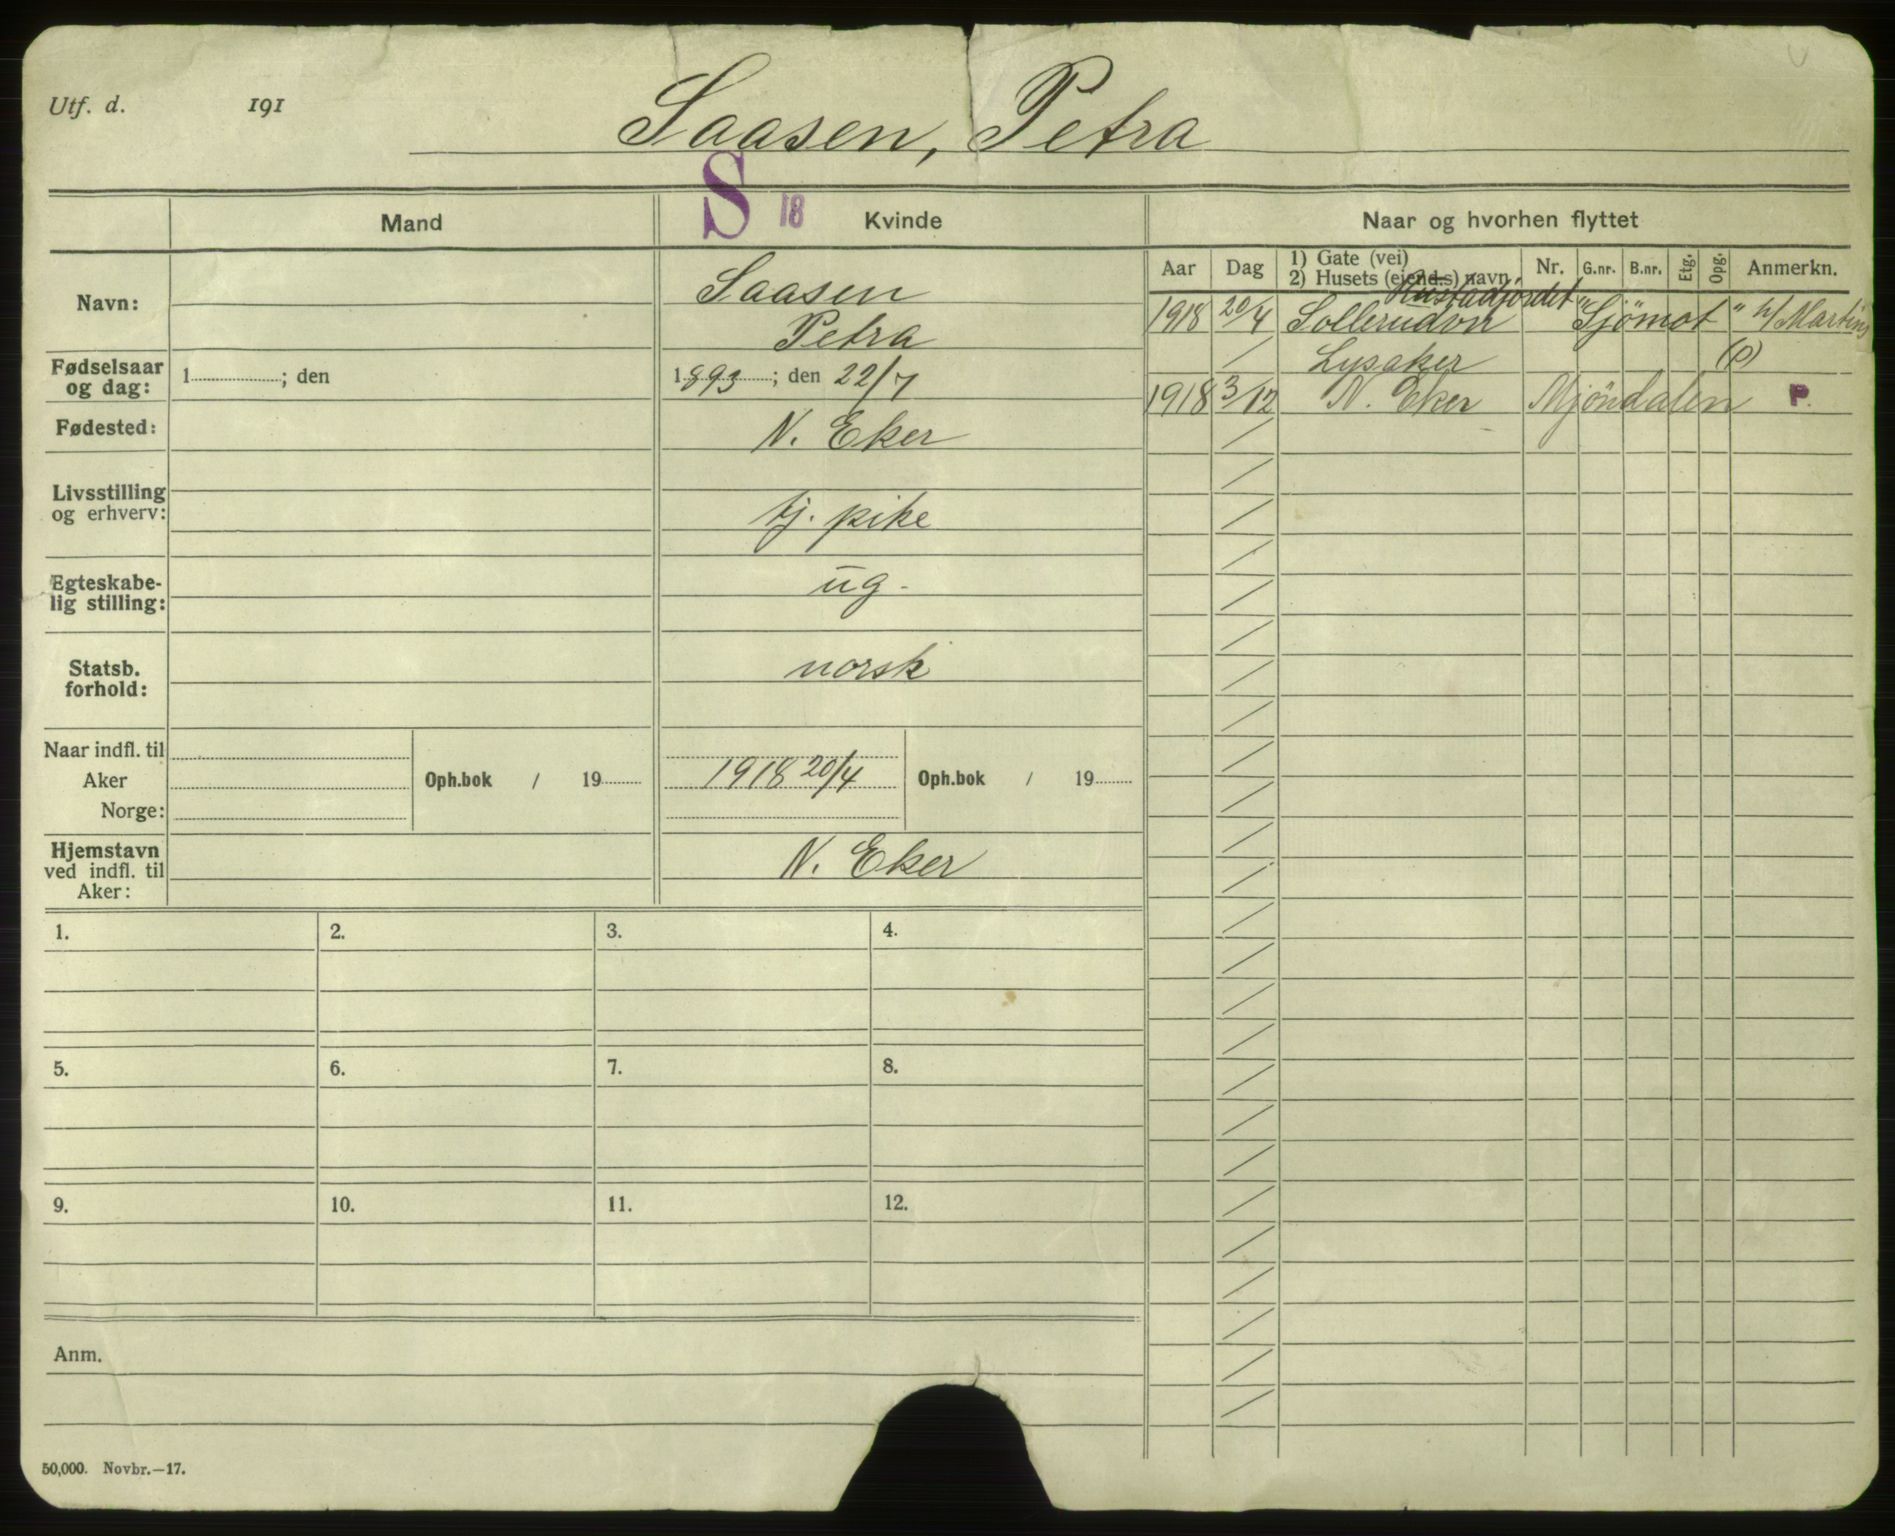 Utf. d. 191
Saasen, Petra
S 18
Mand Kvinde Naar og hvorhen flyttet
Navn:
Saasen
Petra
Fødselsaar
og dag:
1 ; den
1893 ; den 22/7
Fødested:
N. Eker
Livsstilling
og erhverv:
tj. pike
Egteskabe-
lig stilling:
ug.
Statsb.
forhold:
norsk
Naar indfl. til
Aker
Norge:
Oph.bok / 19
1918 20/4
Oph.bok / 19
Hjemstavn
ved indfl. til
Aker:
N. Eker
1. 2. 3. 4.
5. 6. 7. 8.
9. 10. 11. 12.
Anm.
50,000. Novbr.—17.
Aar Dag 1) Gate (vei)
2) Husets (ejend.s) navn Nr. G.nr. B.nr. Etg. Opg. Anmerkn.
1918 20/4 Sollerudvn "Sjömot" h/ Martins
Lysaker (P)
1918 3/12 N. Eker Mjöndalen P.